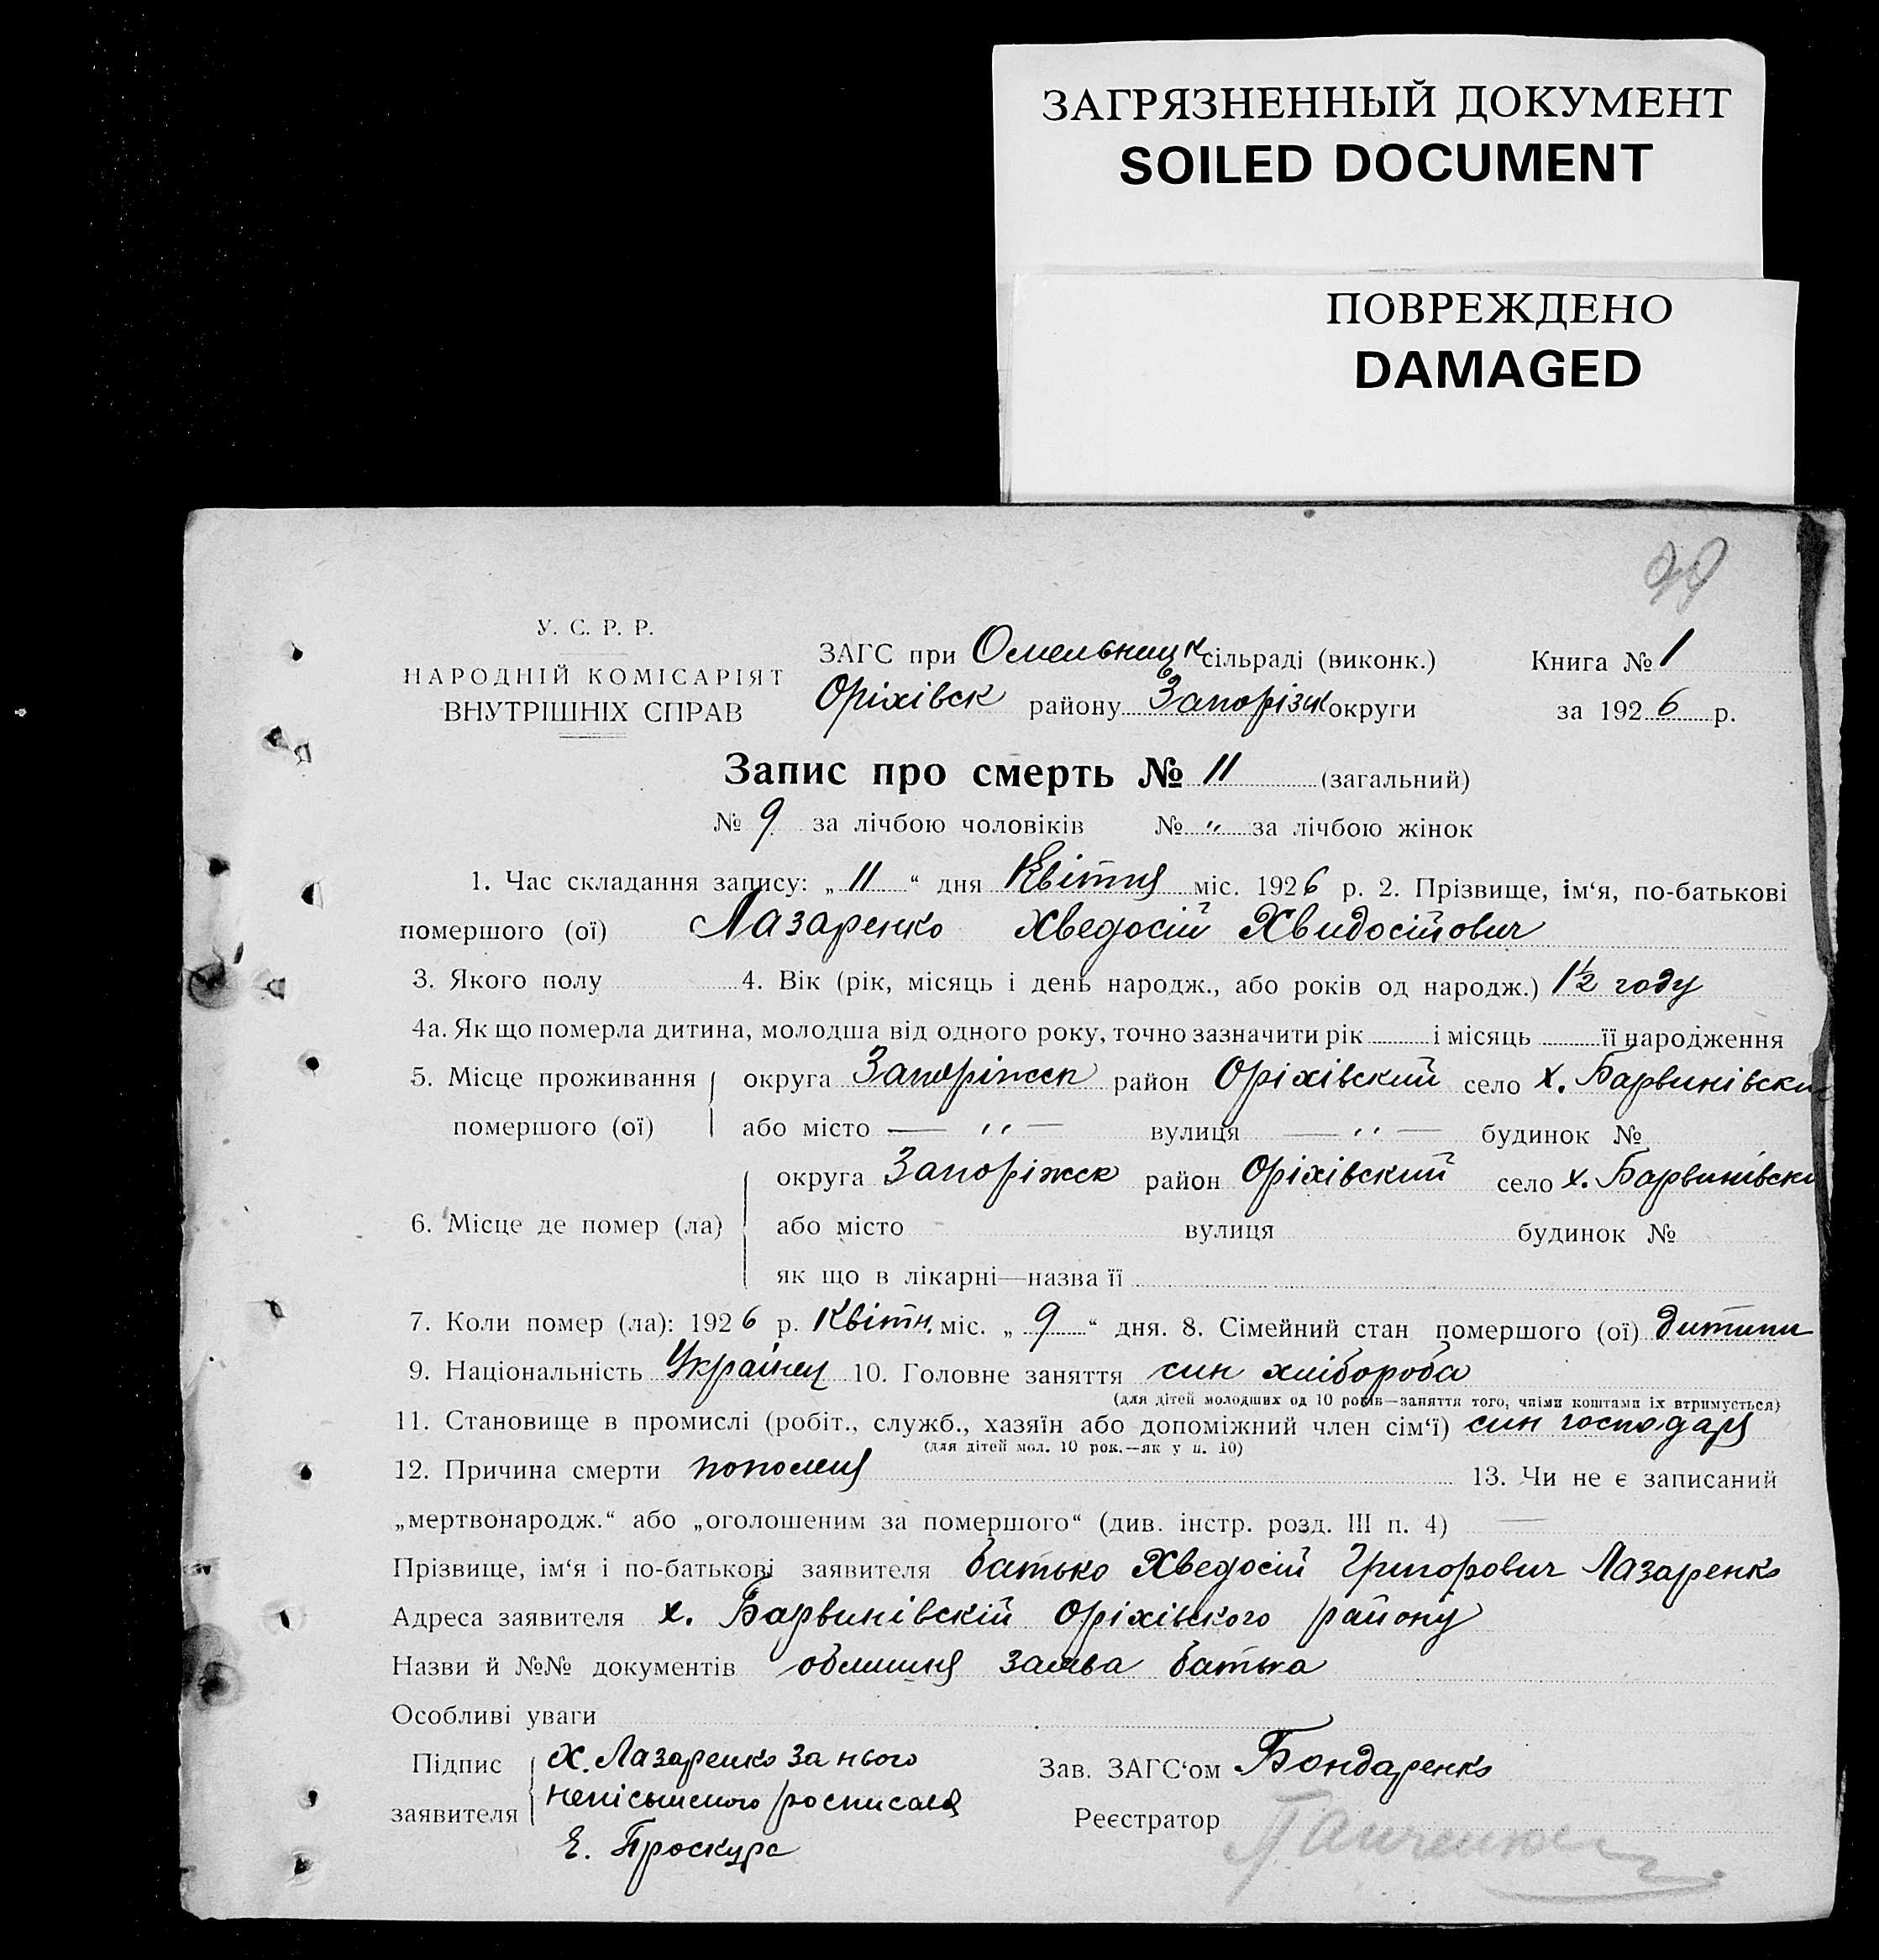 ЗАГРЯЗНЕННЫЙ ДОКУМЕНТ
SOILED DOCUMENT
ПОВРЕЖДЕНО
DAMAGED
У. С. Р. Р.
НАРОДНІЙ КОМІСАРІЯТ
ВНУТРІШНІХ СПРАВ
ЗАГС при Омельницк сільраді (виконк.) Книга № 1
Оріхівск району Запорізьк округи за 1926 р.
Запис про смерть № 11 (загальний)
№ 9 за лічбою чоловіків № „ за лічбою жінок
1. Час складання запису: „11“ дня Квітня міс. 1926 р. 2. Прізвище, ім‘я, по-батькові
помершого (ої) Лазаренко Хведосій Хвидосійович
3. Якого полу 4. Вік (рік, місяць і день народж., або років од народж.) 1½ году
4а. Як що померла дитина, молодша від одного року, точно зазначити рік і місяць її народження
5. Місце проживання округа Запоріжск район Оріхівский село х. Барвинівский
помершого (ої) або місто — „ — вулиця — „ — будинок №
округа Запоріжск район Оріхівский село х. Барвинівски
6. Місце де помер (ла) або місто вулиця будинок №
як що в лікарні—назва її
7. Коли помер (ла): 1926 р. Квітн. міс. „9“ дня. 8. Сімейний стан помершого (ої) дитина
9. Національність Украінец 10. Головне заняття син хлібороба
(для дітей молодших од 10 років—заняття того, чиїми коштами їх втримується)
11. Становище в промислі (робіт., служб., хазяїн або допоміжний член сім‘ї) син господаря
(для дітей мол. 10 рок.—як у п. 10)
12. Причина смерти 13. Чи не є записаний
„мертвонародж.“ або „оголошеним за помершого“ (див. інстр. розд. III п. 4) —
Прізвище, ім‘я і по-батькові заявителя батько Хведосій Григорович Лазаренко
Адреса заявителя х. Барвинівскій Оріхівского району
Назви й №№ документів заява батька
Особливі уваги
Підпис Х. Лазаренко за нього Зав. ЗАГС‘ом Бондаренко
заявителя неписьменого росписався Реєстратор Панченко
Е. Проскура